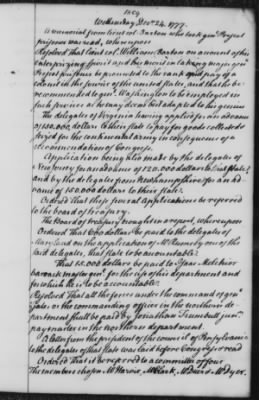 Wednesday, Decr 24. 1777.
A memorial from lieut. col. Barton who took genl Prescot
prisoner was read, whereupon
Resolved That lieut. col. William Barton on account of his
enterprizing spirit and his merit in taking major genl
Prescot prisoner be promoted to the rank and pay of a
colonel in the service of the united states, and that he be
recommended to genl Washington to be employed in
such service as he may deem best adapted to his genius
The delegates of Virginia having applied for an advance
of 150,000 dollars to their state to pay for goods collected &
seized for the continental army in consequence of a
recommendation of Congress.
Application being also made by the delegates of
New Jersey for an advance of 120,000 dollars to that state,
and by the delegates from Newhampshire for an ad-
vance of 150,000 dollars to their state:
Ordered That these several applications be referred
to the board of treasury.
The Board of treasury brought in a report, whereupon
Ordered That dollars be paid to the delegates of
Maryland on the application of Mr Rumsey one of the
said delegates, that state to be accountable:
That 15,000 dollars be paid to Isaac Melchior
barrack master genl for the use of his department and
for which he is to be accountable.
Resolved That all the forces under the command of genl
Gates or the commanding officer in the northern de
partment shall be paid by Jonathan Trumbull junr
paymaster in the northern department.
A Letter from the president of the council of Pensylvania
to the delegates of that state was laid before Congress & read
Ordered That it be referred to a committee of four
The members chosen Mr Harvie, Mr Clark, Mr Duer & Mr Dyer.